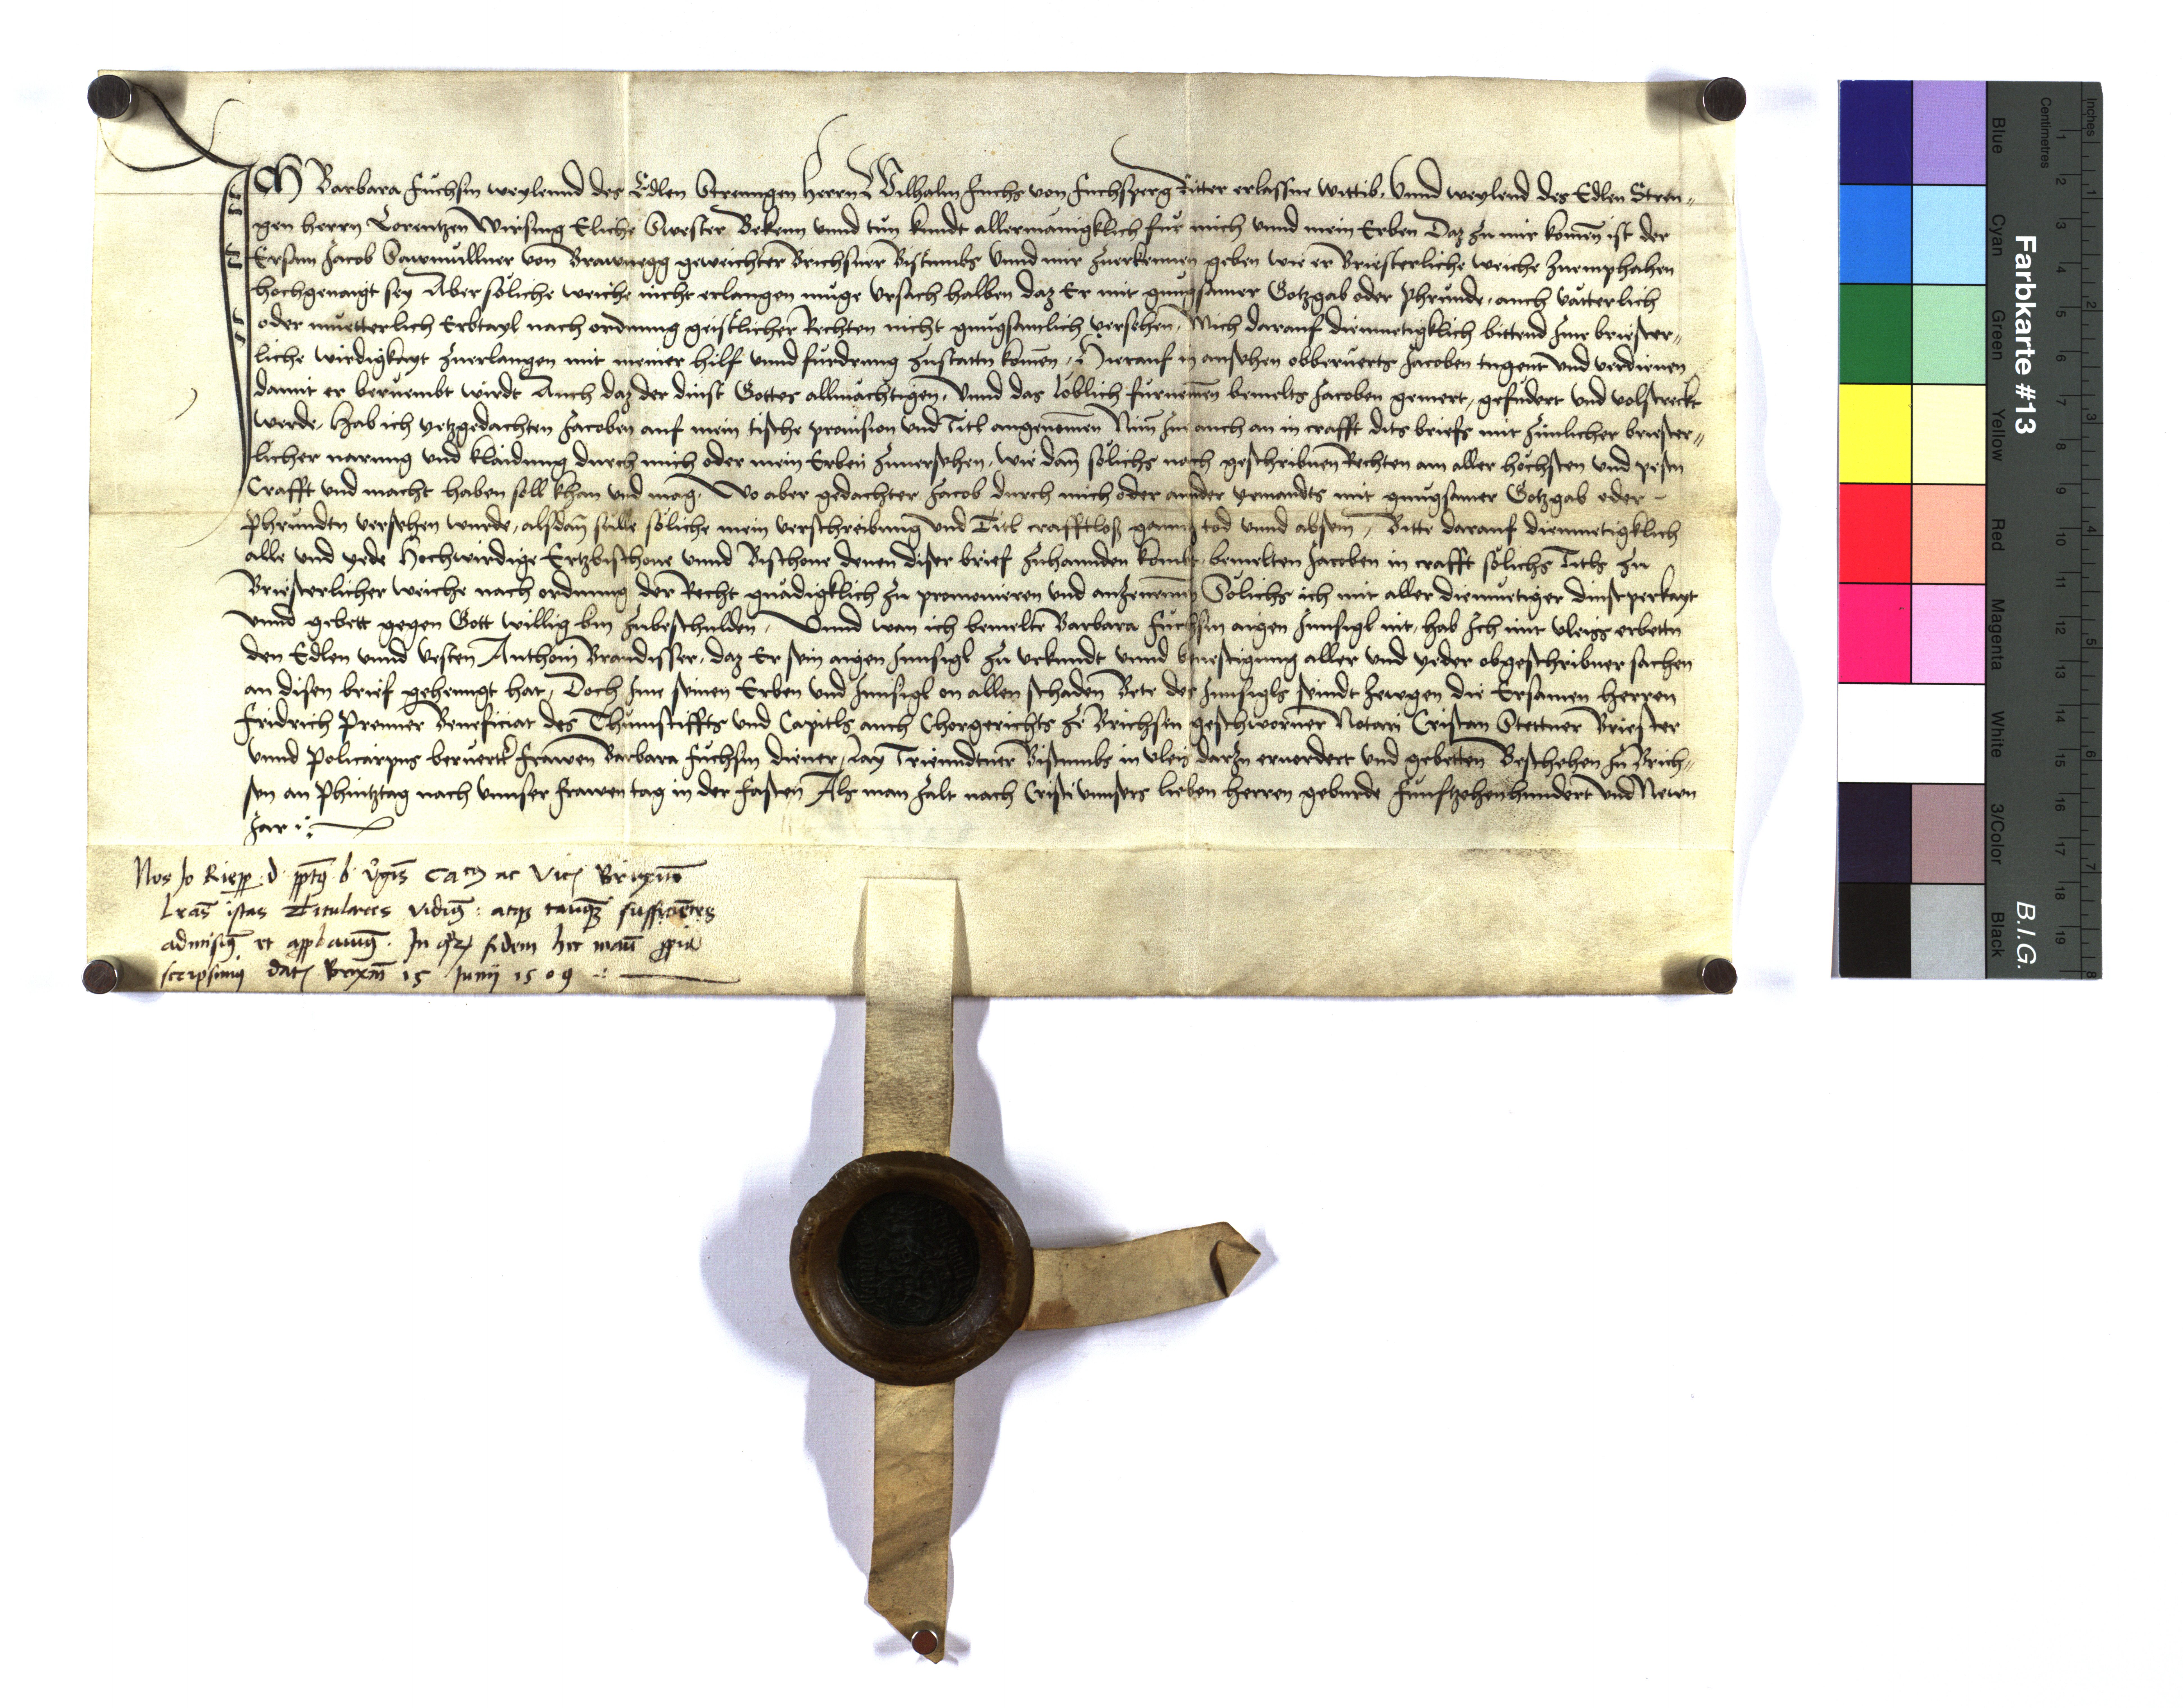 ICH Barbara Fuchsin weylennd des Edlen Strenngen herrn Wilhalm Fuchs von Fuchsperg Ritter erlassne wittib, Vnnd weylend des Edlen Stren„
gen herrn Lorentzen Wirsing Eliche Swester Bekenn vnnd tůn kundt allermänigklich für mich vnnd mein Erben Daz zu mir komen̄ ist der
Ersam Jacob Sawmüllner von Brawnegg geweichter Brichsner Bistumbs Vnnd mir zuerkennen geben wie er Briesterliche weiche zuemphahen
hochgenaigt sey Aber söliche weiche nicht erlangen müge vrsach halben daz Er mit gnugsamer Gotzgab oder phründe, auch vätterlich
oder muetterlich Erbtayl nach ordnung geistlicher Rechten nicht gnugsamlich versehen, Mich darauf diemuetigklich bittend Jme briester„
liche wirdigkayt zuerlangen mit meiner hilf vnnd fürdrung zustattn komen̄, Hierauf in ansehen obberuerts Jacoben tugent vnd verdienen
damit er beruembt wirdt Auch daz der dinst Gottes allmächtigen, Vnnd das löblich fürnemen̄ bemelts Jacoben gemert, gefudert vnd volstreckt
werde, Hab ich yetzgedachten Jacoben auf mein tische prouision vnd Titl angenomen̄ Nim̄ Jn auch an in crafft dits briefs mit zimlicher briester„
licher narung vnd klaidung durch mich oder mein Erben zuuersehen, wie dan̄ sölichs nach geschribnen Rechten am aller höchsten vnd pestn
Crafft vnd macht haben soll khan vnd mag, Wo aber gedachter Jacob durch mich oder annder yemandts mit gnugsamer Gotzgab oder
Phründtn versehen wurde, alsdan̄ sulle söliche mein verschreibung vnd Titl crafftloß gannz tod vnnd absein, Bitte darauf diemuetigklich
alle vnd yede Hochwirdige Ertzbischoue vnnd Bischoue denen diser brief zuhannden kombt, bemelten Jacoben in crafft sölichs Titls zu
Briesterlicher weiche nach ordnung der Recht gnädigklich zu promouieren vnd anzenemen̄ Sölichs ich mit aller diemuetiger dinstperkayt
vnnd gebett gegen Gott willig bin zubeschulden, Vnnd wan ich bemelte Barbara Fuchsin aigen Jnnsigl nit, hab Jch mit vleiss erbettn
den Edlen vnnd vesten Anthoni Brandisser, daz Er sein aigen Jnnsigl zu vrkundt vnnd beuestigung aller vnd yeder obgeschribner sachen
an disen brief gehenngt hat, Doch Jme seinen Erben vnd Jnnsigl on allen schaden Bete des Jnnsigls seindt zewgen die Ersamen Herren
Fridrich Prenner Beneficiat des Thumstiffts vnd Capitls auch Chorgerichts ze Brichsen geschworner Notari Cristan Stettner Briester
vnnd Policarpus beruertr Frawen Barbara Fuchsin diener, Lay Trienndtner Bistumbs in vleis darzu eruordert vnd gebetten Beschehen zu Brich„
sen an Phintztag nach vnnser Frawen tag in der Fasten Als man zalt nach Cristi vnnsers lieben Herren geburde Funfftzehenhundert vnd Newn
Jar
Nos Jo Riepp d ppts b v̄gis can ac vic Brixin̄
Lr̄as istas Titulares vidim9 : atq3 tanq3 sufficiētes
admisim9 et approbauim9. Jn qr fidem hec manu ppria
scripsimus dat Brixin̄ 15 Junij 1509
Farbkarte #13
B.I.G.
Blue
Cyan
Green
Yellow
Red
Magenta
White
3/Color
Black
Inches
Centimetres
1 2 3 4 5 6 7 8 9 10 11 12 13 14 15 16 17 18 19
1 2 3 4 5 6 7 8